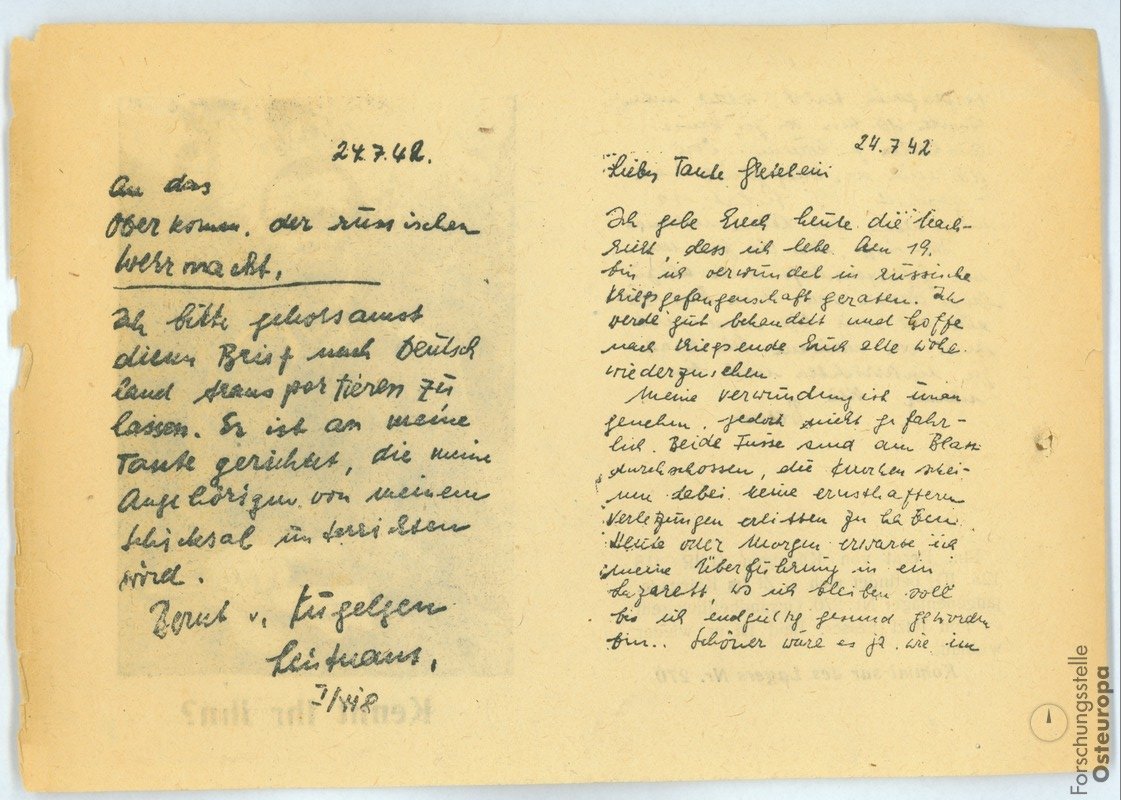 24.7.42.
An das
Oberkomm. der russischen
Wehrmacht.
Ich bitte gehorsamst
diesen Brief nach Deutsch
land transportieren zu
lassen. Er ist an meine
Tante gerichtet, die meine
Angehörigen von meinem
Schicksal unterrichten
wird.
Bernt v. Kügelgen
Leutnant.
24.7.42
Liebes Tante
Ich gebe Euch heute die Nach-
richt, dass ich lebe. Am 19.
bin ich verwundet in russische
Kriegsgefangenschaft geraten. Ich
werde gut behandelt und hoffe
nach Kriegsende Euch alle
wiederzusehen.
Meine Verwundung ist unan
genehm, jedoch nicht gefähr-
lich. Beide Füsse sind am
durchschossen, die Knochen schei-
nen dabei keine ernsthaftern
Verletzungen erlitten zu haben.
Heute oder Morgen erwarte ich
meine Überführung in ein
Lazarett, wo ich bleiben soll
bis ich endgültig gesund geworden
bin.. Schöner wäre es ja wie im
Kommissar des Lagers Nr. 270
Kennt Ihr ihn?
Forschungsstelle
Osteuropa